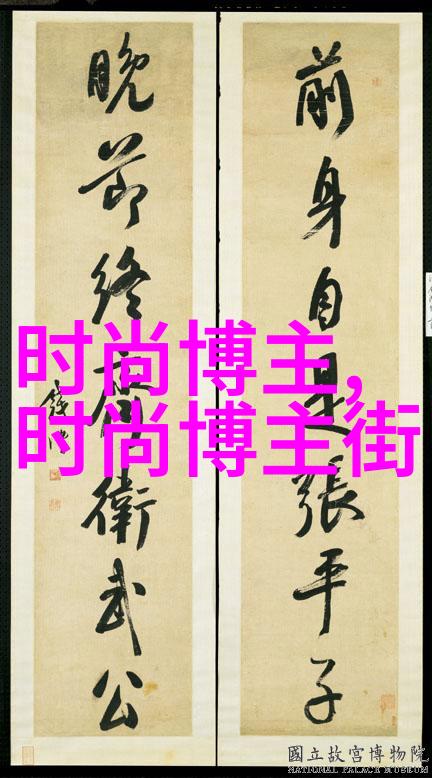 前身自是張平子
晚節終齋衛武公
時尚博主,
时尚博主街
國立故宮博物院
NATIONAL PALACE MUSEUM